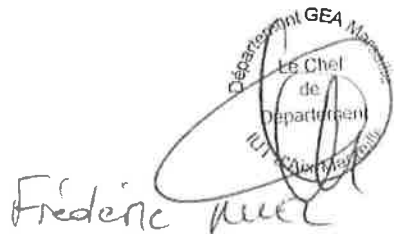 Département GEA Marseille
Le Chef
de
Département
IUT d'Aix-Marseille
Frédéric